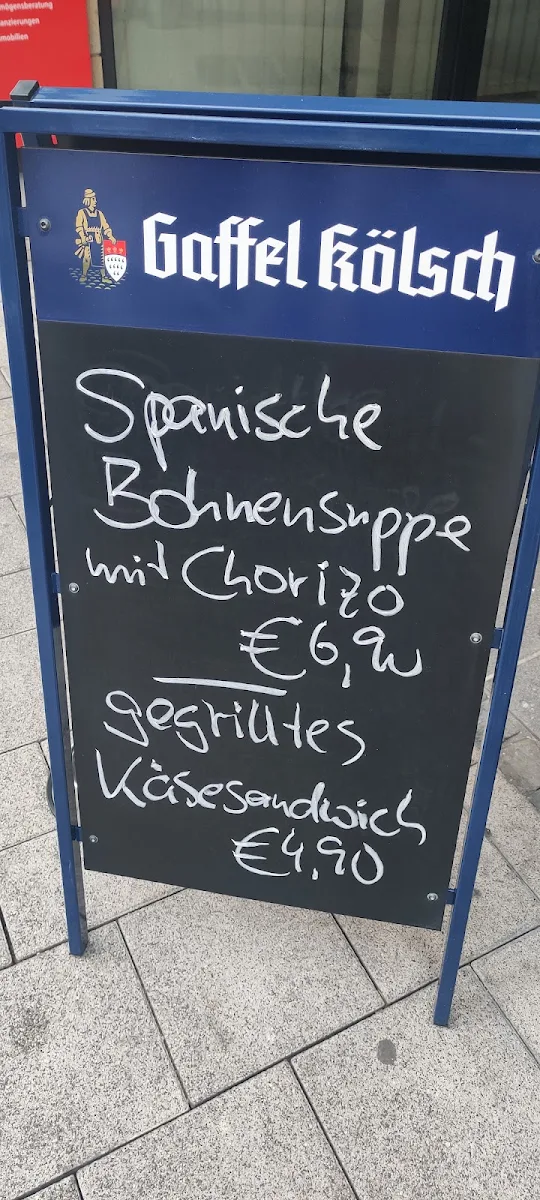 mögensberatung
anzierungen
mobilien
Gaffel Kölsch
Spanische
Bohnensuppe
mit Chorizo
€ 6,90
gegrilltes
Käsesandwich
€ 4,90